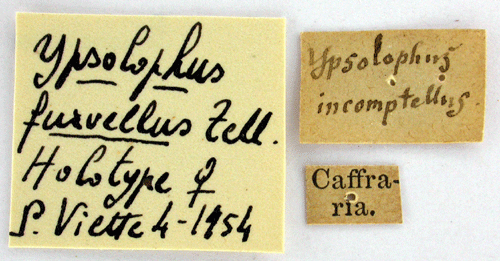 Ypsolophus
furvellus Zell.
Holotype ♀
P. Viette 4-1954
Ypsolophus
incomptellus.
Caffra-
ria.